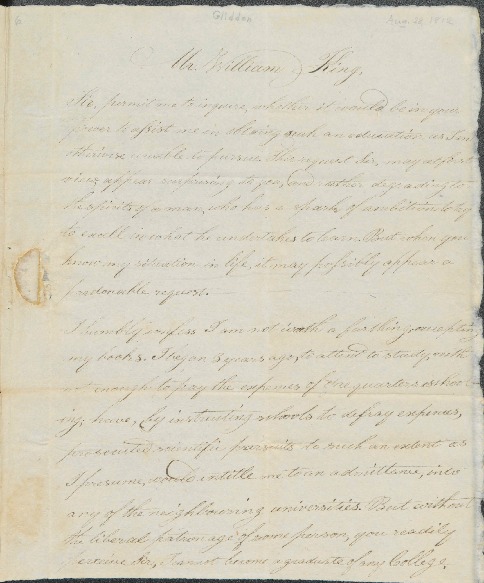 Glidden
Aug. 28 1812
Mr. William King.
Sir, permit me to inquire, whether it would be in your
power to assist me in obtaining such an education as I am
otherwise unable to pursue. This request Sir, may at first
view, appear surprising to you, and rather degrading to
the spirits of a man, who has a spark of ambition to try
to excell in what he undertakes to learn. But when you
know my situation in life, it may possibly appear a
pardonable request.
I humbly confess I am not worth a farthing excepting
my books. I began 3 years ago, to attend to study, with
not enough to pay the expenses of one quarters school-
ing; have, by instructing schools to defray expenses,
prosecuted scientific pursuits to such an extent as
I presume, would intitle me to an admittance, into
any of the neighbouring universities. But without
the liberal patronage of some person, you readily
Sir, I cannot become a graduate of any College,